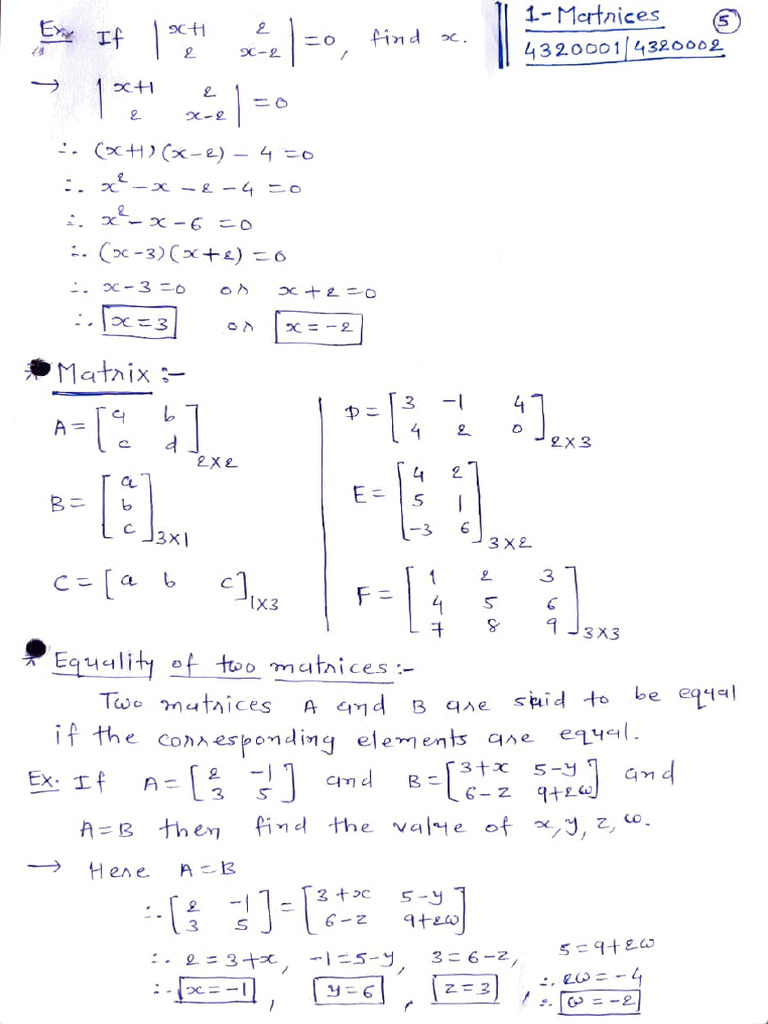 1-Matrices 5
4320001/4320002
Ex. If | x+1 2 | = 0, find x.
| 2 x-2 |
→ | x+1 2 | = 0
| 2 x-2 |
∴ (x+1)(x-2) - 4 = 0
∴ x² - x - 2 - 4 = 0
∴ x² - x - 6 = 0
∴ (x-3)(x+2) = 0
∴ x-3=0 or x+2=0
∴ x=3 or x=-2
* Matrix :-
A = [ a b ]
[ c d ] 2x2
B = [ a ]
[ b ]
[ c ] 3x1
C = [ a b c ] 1x3
D = [ 3 -1 4 ]
[ 4 2 0 ] 2x3
E = [ 4 2 ]
[ 5 1 ]
[ -3 6 ] 3x2
F = [ 1 2 3 ]
[ 4 5 6 ]
[ 7 8 9 ] 3x3
* Equality of two matrices :-
Two matrices A and B are said to be equal
if the corresponding elements are equal.
Ex. If A = [ 2 -1 ] and B = [ 3+x 5-y ] and
[ 3 5 ] [ 6-z 9+2ω ]
A=B then find the value of x, y, z, ω.
→ Here A=B
∴ [ 2 -1 ] = [ 3+x 5-y ]
[ 3 5 ] [ 6-z 9+2ω ]
∴ 2=3+x, -1=5-y, 3=6-z, 5=9+2ω
∴ 2ω = -4
∴ x=-1, y=6, z=3, ∴ ω=-2